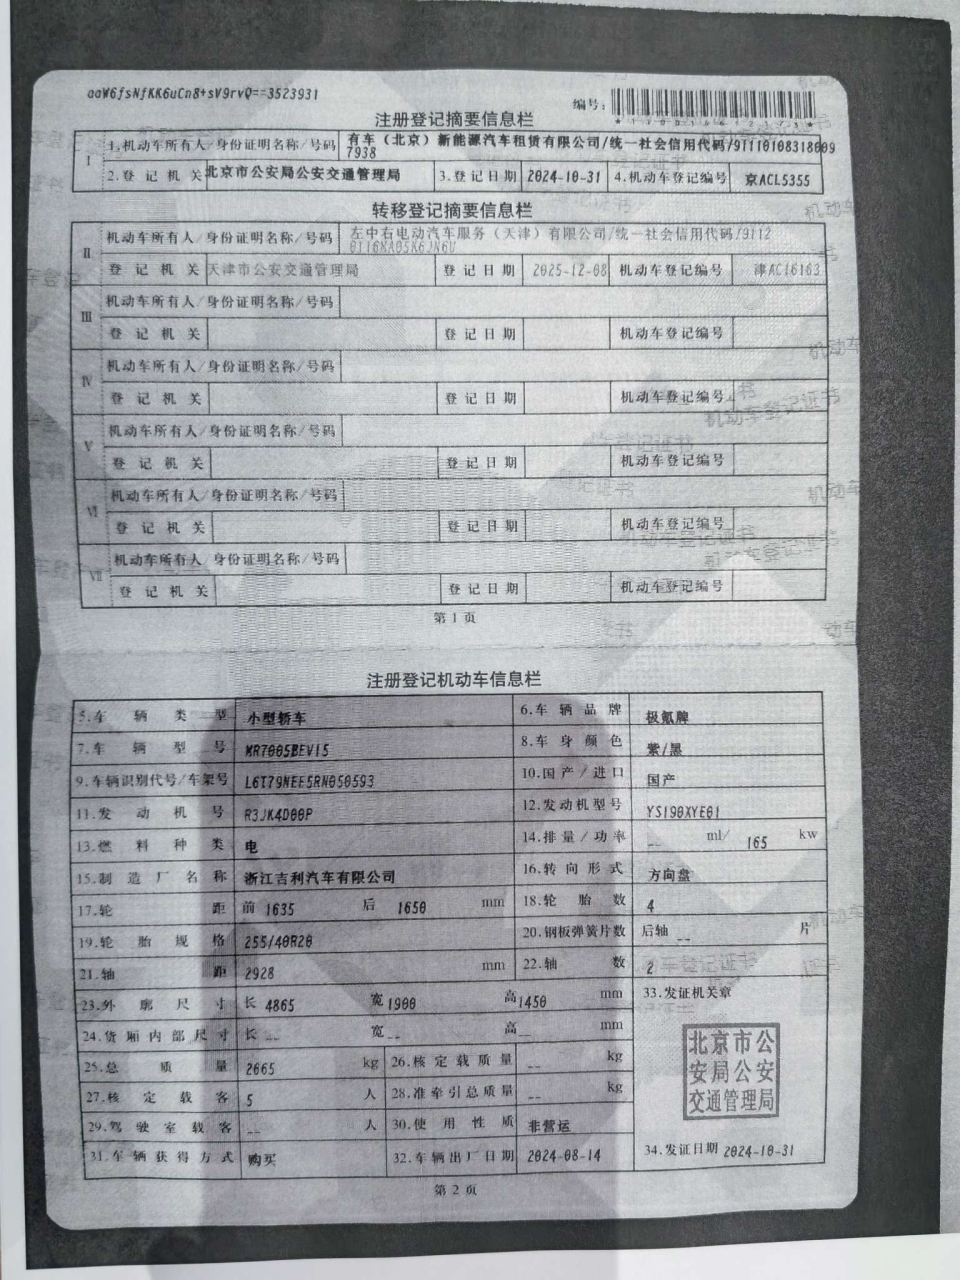 aaW6fsNfKK6uCn8+sV9rvQ==3523931
编号:
注册登记摘要信息栏
I 1.机动车所有人/身份证明名称/号码 有车（北京）新能源汽车租赁有限公司/统一社会信用代码/91110108318009
7938
2.登记机关 北京市公安局公安交通管理局 3.登记日期 2024-10-31 4.机动车登记编号 京ACL5355
转移登记摘要信息栏
II 机动车所有人/身份证明名称/号码 左中右电动汽车服务（天津）有限公司/统一社会信用代码/9112
0116MA05K6JN6U
登记机关 天津市公安交通管理局 登记日期 2025-12-08 机动车登记编号 津AC16163
III 机动车所有人/身份证明名称/号码
登记机关 登记日期 机动车登记编号
IV 机动车所有人/身份证明名称/号码
登记机关 登记日期 机动车登记编号
V 机动车所有人/身份证明名称/号码
登记机关 登记日期 机动车登记编号
VI 机动车所有人/身份证明名称/号码
登记机关 登记日期 机动车登记编号
VII 机动车所有人/身份证明名称/号码
登记机关 登记日期 机动车登记编号
第1页
注册登记机动车信息栏
5.车辆类型 小型轿车 6.车辆品牌 极氪牌
7.车辆型号 MR7005BEV15 8.车身颜色 紫/黑
9.车辆识别代号/车架号 L6T79NEE5RN050593 10.国产/进口 国产
11.发动机号 R3JK4D00P 12.发动机型号 YS190XYE01
13.燃料种类 电 14.排量/功率 -- ml/ 165 kw
15.制造厂名称 浙江吉利汽车有限公司 16.转向形式 方向盘
17.轮距 前 1635 后 1650 mm 18.轮胎数 4
19.轮胎规格 255/40R20 20.钢板弹簧片数 后轴 -- 片
21.轴距 2928 mm 22.轴数 2
23.外廓尺寸 长 4865 宽 1900 高 1450 mm 33.发证机关章
24.货厢内部尺寸 长 -- 宽 -- 高 -- mm
25.总质量 2665 kg 26.核定载质量 -- kg
27.核定载客 5 人 28.准牵引总质量 -- kg
北京市公
安局公安
交通管理局
29.驾驶室载客 -- 人 30.使用性质 非营运
31.车辆获得方式 购买 32.车辆出厂日期 2024-08-14 34.发证日期 2024-10-31
第2页